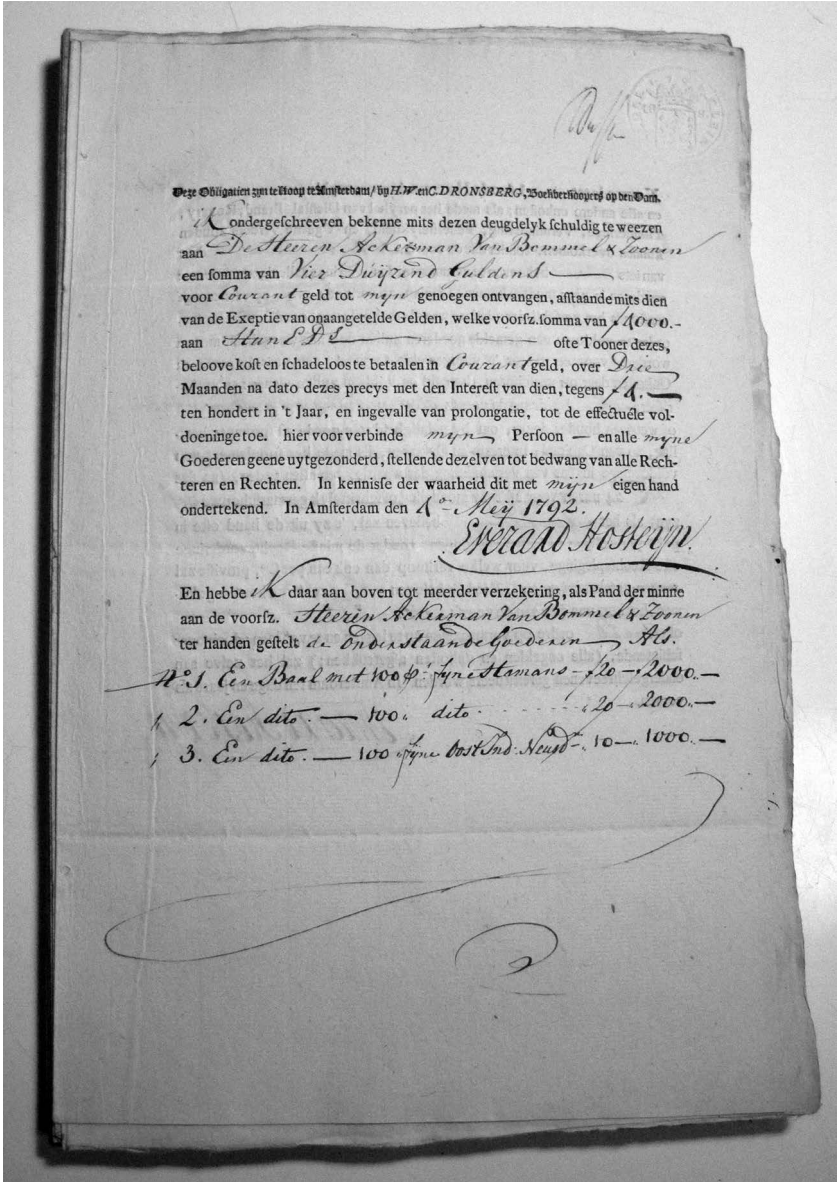 Deze Obligatien zyn te Koop te Amsterdam / by H.W. en C. DRONSBERG, Boekverkoopers op den Dam.
IK ondergeschreeven bekenne mits dezen deugdelyk schuldig te weezen
aan De Heeren Ackerman Van Bommel & Zoonen
een somma van Vier Duijzend Guldens
voor Courant geld tot mijn genoegen ontvangen, afstaande mits dien
van de Exeptie van onaangetelde Gelden, welke voorsz. somma van ƒ4000.-
aan Hun EDs ofte Tooner dezes,
beloove kost en schadeloos te betaalen in Courant geld, over Drie
Maanden na dato dezes precys met den Interest van dien, tegens ƒ4.—
ten hondert in 't Jaar, en ingevalle van prolongatie, tot de effectuéle vol-
doeninge toe. hier voor verbinde mijn Persoon — en alle mijne
Goederen geene uytgezonderd, stellende dezelven tot bedwang van alle Rech-
teren en Rechten. In kennisse der waarheid dit met mijn eigen hand
ondertekend. In Amsterdam den Meij 1792.
Everard Hosteijn.
En hebbe ik daar aan boven tot meerder verzekering, als Pand der minne
aan de voorsz. Heeren Ackerman Van Bommel & Zoonen
ter handen gestelt de onderstaande Goederen Als.
1. Een Baal met 100 fijne - ƒ20 - ƒ2000.—
2. Een dito. — 100 dito 20 - 2000.—
3. Een dito. — 100 fijne Oost Ind: 10 - 1000.—